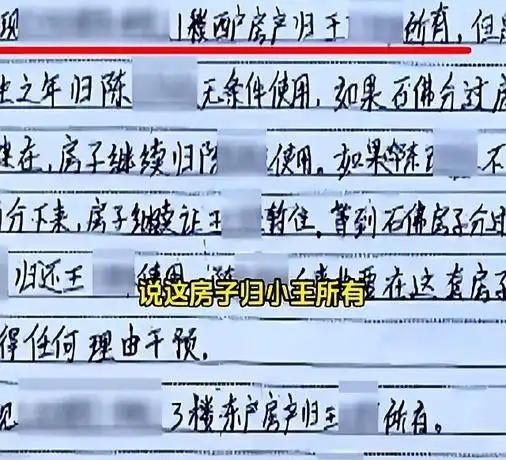 现 1楼西户房产归王 所有，但是
生之年归陈 无条件使用，如果石佛分过房
健在，房子继续归陈 使用。如果陈 不
分下来，房子继续让王 暂住，等到石佛房子分过
归还王 使用 在这套房子
说这房子归小王所有
得任何理由干预。
见 3楼东户房产归王 所有。